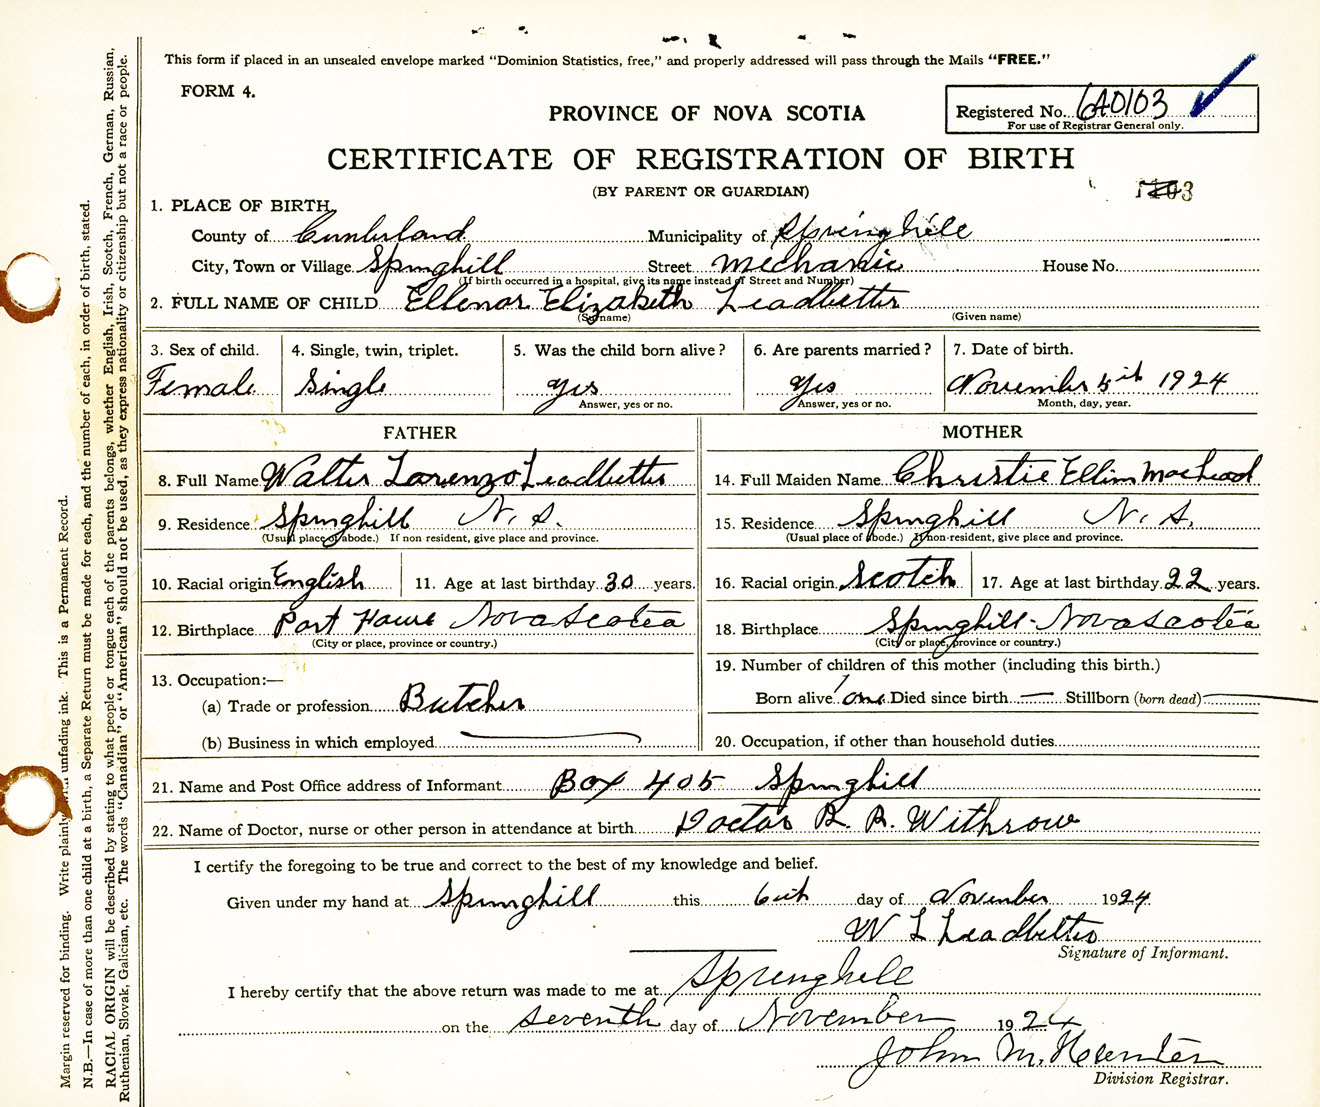 This form if placed in an unsealed envelope marked "Dominion Statistics, free," and properly addressed will pass through the Mails "FREE."
FORM 4.
PROVINCE OF NOVA SCOTIA
Registered No. 6A0103
For use of Registrar General only.
CERTIFICATE OF REGISTRATION OF BIRTH
(BY PARENT OR GUARDIAN)
1. PLACE OF BIRTH
County of Cumberland Municipality of Springhill
City, Town or Village Springhill Street Mechanic House No.
(If birth occurred in a hospital, give its name instead of Street and Number)
2. FULL NAME OF CHILD Ellenor Elizabeth Leadbetter
(Surname) (Given name)
3. Sex of child. 4. Single, twin, triplet. 5. Was the child born alive? 6. Are parents married? 7. Date of birth.
Female Single yes yes November 5th 1924
Answer, yes or no. Answer, yes or no. Month, day, year.
FATHER MOTHER
8. Full Name Walter Lorenzo Leadbetter 14. Full Maiden Name Christie Ellen MacLeod
9. Residence Springhill N. S. 15. Residence Springhill N. S.
(Usual place of abode.) If non resident, give place and province. (Usual place of abode.) If non-resident, give place and province.
10. Racial origin English 11. Age at last birthday 30 years. 16. Racial origin Scotch 17. Age at last birthday 22 years.
12. Birthplace Port Howe Nova Scotia 18. Birthplace Springhill - Nova Scotia
(City or place, province or country.) (City or place, province or country.)
13. Occupation:— 19. Number of children of this mother (including this birth.)
(a) Trade or profession Butcher Born alive one Died since birth — Stillborn (born dead) —
(b) Business in which employed 20. Occupation, if other than household duties
21. Name and Post Office address of Informant Box 405 Springhill
22. Name of Doctor, nurse or other person in attendance at birth Doctor B. R. Withrow
I certify the foregoing to be true and correct to the best of my knowledge and belief.
Given under my hand at Springhill this 6th day of November 1924
W L Leadbetter
Signature of Informant.
I hereby certify that the above return was made to me at Springhill
on the seventh day of November 1924
John M. Hunter
Division Registrar.
Margin reserved for binding. Write plainly with unfading ink. This is a Permanent Record.
N.B.—In case of more than one child at a birth, a Separate Return must be made for each, and the number of each, in order of birth, stated.
RACIAL ORIGIN will be described by stating to what people or tongue each of the parents belongs, whether English, Irish, Scotch, French, German, Russian,
Ruthenian, Slovak, Galician, etc. The words "Canadian" or "American" should not be used, as they express nationality or citizenship but not a race or people.